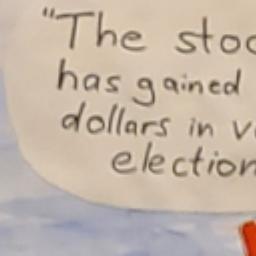 "The stoc
has gained
dollars in v
election